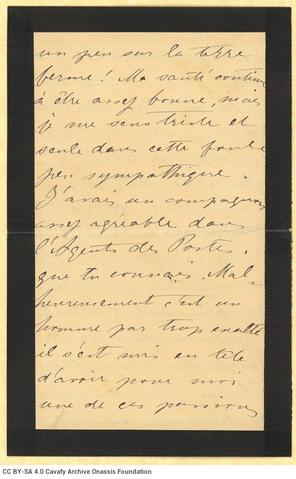 un peu sur la terre
ferme! Ma santé continue
à être assez bonne, mais
je me sens triste et
seule dans cette foule
peu sympathique.
J'avais un compagnon
assez agréable dans
l'Agents des Postes.
que tu connais. Mal-
heureusement c'est un
homme par trop exalté
il s'est mis en tete
d'avoir pour moi
une de ces passions
CC BY-SA 4.0 Cavafy Archive Onassis Foundation